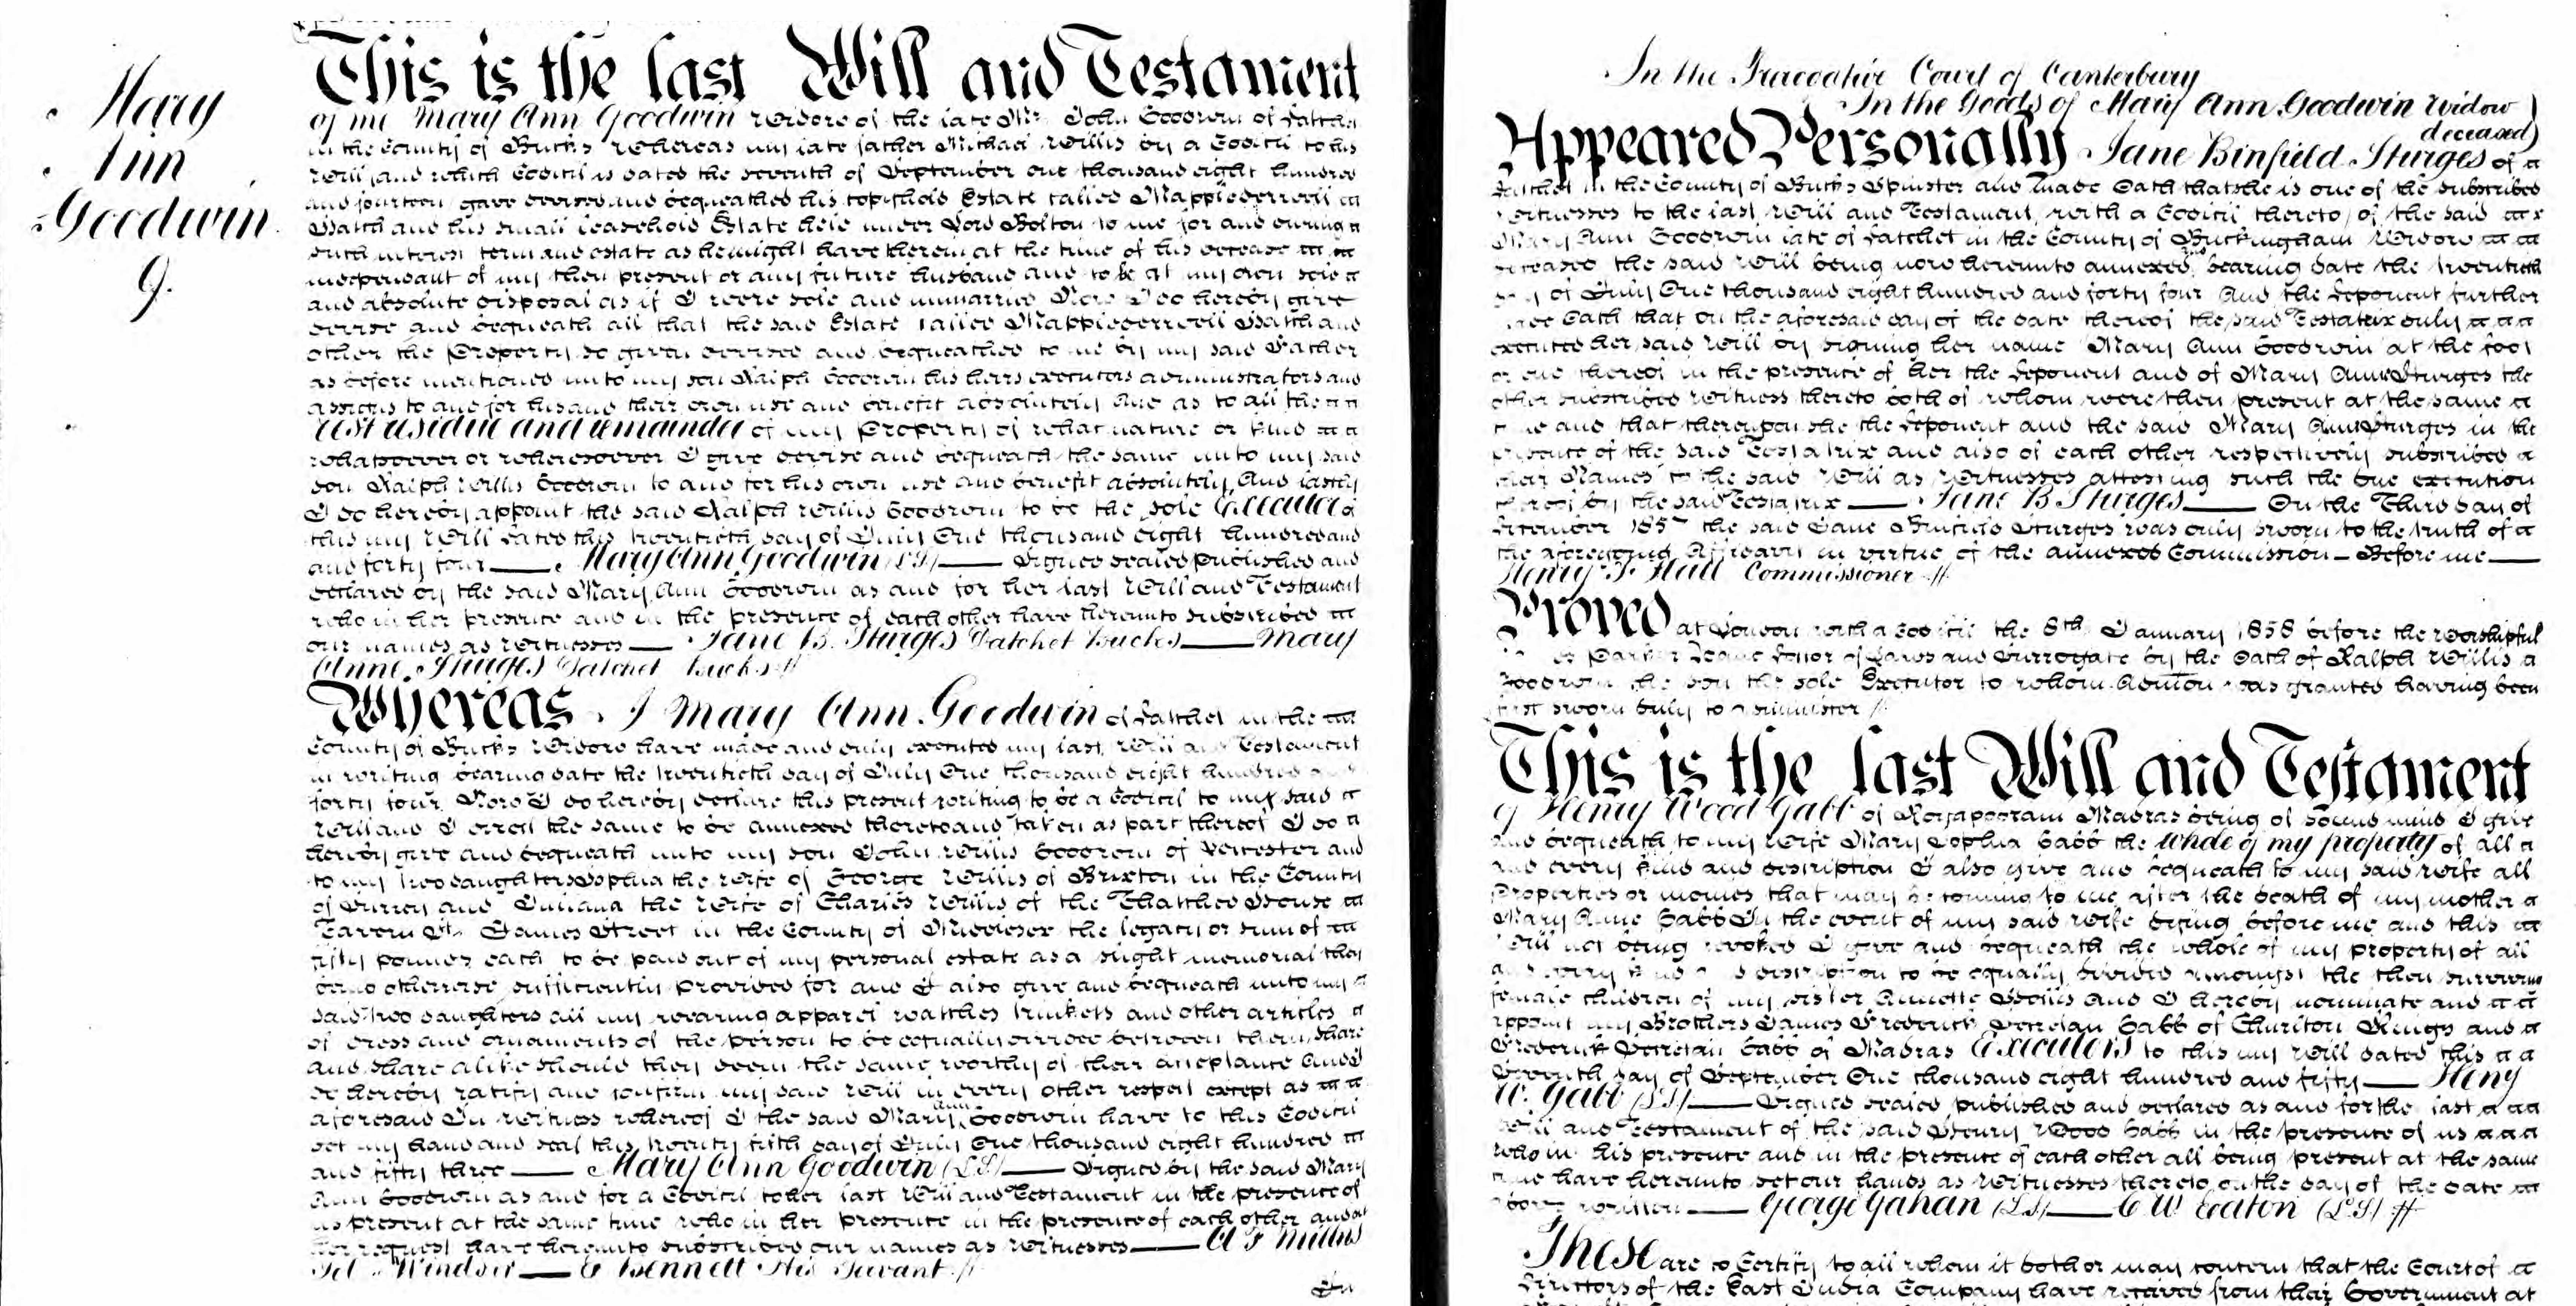 Mary
Ann
Goodwin.
9.
This is the last Will and Testament
of me Mary Ann Goodwin Widow of the late Mr John Goodwin of Datchet
in the County of Bucks Whereas my late father Michael Willis by a Codicil to his
Will and which Codicil is dated the seventh of September one thousand eight hundred
and fourteen gave devised and bequeathed his copyhold Estate called Mapplederwell in
Hatch and his small leasehold Estate held under Lord Bolton to me for and during
such interest term and estate as he might have therein at the time of his decease
independant of my then present or any future husband and to be at my own sole
and absolute disposal as if I were sole and unmarried Now I do hereby give
devise and bequeath all that the said Estate called Mapplederwell Hatch and
other the Property so given devised and bequeathed to me by my said Father
as before mentioned unto my son Ralph Goodwin his heirs executors administrators and
assigns to and for his and their own use and benefit absolutely And as to all the
rest residue and remainder of my Property of what nature or kind
whatsoever or wheresoever I give devise and bequeath the same unto my said
son Ralph Willis Goodwin to and for his own use and benefit absolutely And lastly
I do hereby appoint the said Ralph Willis Goodwin to be the sole Executor
this my Will Dated this twentieth day of July One thousand eight hundred and
and forty four — Mary Ann Goodwin (LS) — Signed sealed published and
declared by the said Mary Ann Goodwin as and for her last Will and Testament
who in her presence and in the presence of each other have hereunto subscribed
our names as witnesses — Jane B. Sturges Datchet Bucks — Mary
Anne Sturges Datchet Bucks //
Whereas I Mary Ann Goodwin of Datchet in the
County of Bucks Widow have made and duly executed my last Will and Testament
in writing bearing date the twentieth day of July One thousand eight hundred and
forty four. Now I do hereby declare this present writing to be a Codicil to my said
Will and I direct the same to be annexed thereto and taken as part thereof I do
hereby give and bequeath unto my son John Willis Goodwin of Worcester and
to my two daughters Sophia the wife of George Willis of Brixton in the County
of Surrey and Juliana the wife of Charles Willis of the Thatched House
Tavern St James Street in the County of Middlesex the legacy or sum of
fifty pounds each to be paid out of my personal estate as a slight memorial they
being otherwise sufficiently provided for and I also give and bequeath unto my
said two daughters all my wearing apparel watches trinkets and other articles
of dress and ornaments of the person to be equally divided between them share
and share alike should they deem the same worthy of their acceptance And I
do hereby ratify and confirm my said Will in every other respect except as
aforesaid In witness whereof I the said Mary Ann Goodwin have to this Codicil
set my hand and seal this twenty fifth day of July One thousand eight hundred
and fifty three — Mary Ann Goodwin (LS) — Signed by the said Mary
Ann Goodwin as and for a Codicil to her last Will and Testament in the presence of
us present at the same time who in her presence in the presence of each other and at
her request have hereunto subscribed our names as Witnesses —
Windsor — Bennett His Servant //
In
In the Prerogative Court of Canterbury
In the Goods of Mary Ann Goodwin Widow
deceased
Appeared Personally Jane Binfield Sturges of
Datchet in the County of Bucks Spinster and made Oath that she is one of the subscribed
witnesses to the last Will and Testament with a Codicil thereto of the said
Mary Ann Goodwin late of Datchet in the County of Buckingham Widow
deceased the said Will being now hereunto annexed bearing date the twentieth
day of July One thousand eight hundred and forty four And the Deponent further
made Oath that on the aforesaid day of the date thereof the said Testatrix duly
executed her said Will by signing her name "Mary Ann Goodwin" at the foot
or end thereof in the presence of her the Deponent and of Mary Anne Sturges the
other subscribed witness thereto both of whom were then present at the same
time and that thereupon she the Deponent and the said Mary Anne Sturges in the
presence of the said Testatrix and also of each other respectively subscribed
their Names to the said Will as Witnesses attesting such the due execution
thereof by the said Testatrix — Jane B Sturges — On the Third day of
December 1857 the said Jane Binfield Sturges was duly sworn to the truth of
the aforegoing Affidavit in virtue of the annexed Commission – Before me —
Henry F Hall Commissioner //
Proved at London with a Codicil the 8th January 1858 before the Worshipful
Parker Deane Doctor of Laws and Surrogate by the Oath of Ralph Willis
Goodwin the son the sole Executor to whom Admon was granted having been
first sworn duly to administer //
This is the last Will and Testament
of Henry Wood Gabb of Royapooram Madras being of sound mind I give
and bequeath to my wife Mary Sophia Gabb the whole of my property of all
and every kind and description I also give and bequeath to my said wife all
Properties or monies that may be coming to me after the death of my mother
Mary Anne Gabb In the event of my said wife dying before me and this
Will not being revoked I give and bequeath the whole of my property of all
and every kind and description to be equally divided amongst the then surviving
female children of my sister Annette Hollis and I hereby nominate and
appoint my Brothers James Frederick Secretan Gabb of Charlton Kings and
Frederick Secretan Gabb of Madras Executors to this my Will dated this
Seventh day of September One thousand eight hundred and fifty — Heny
W. Gabb (LS) — Signed sealed published and declared as and for the last
Will and Testament of the said Henry Wood Gabb in the presence of us
who in his presence and in the presence of each other all being present at the same
time have hereunto set our hands as Witnesses thereto on the day of the date
above written — George Gahan (LS) — C W Eaton (LS) //
These are to Certify to all whom it doth or may concern that the Court of
Directors of the East India Company have received from their Government at